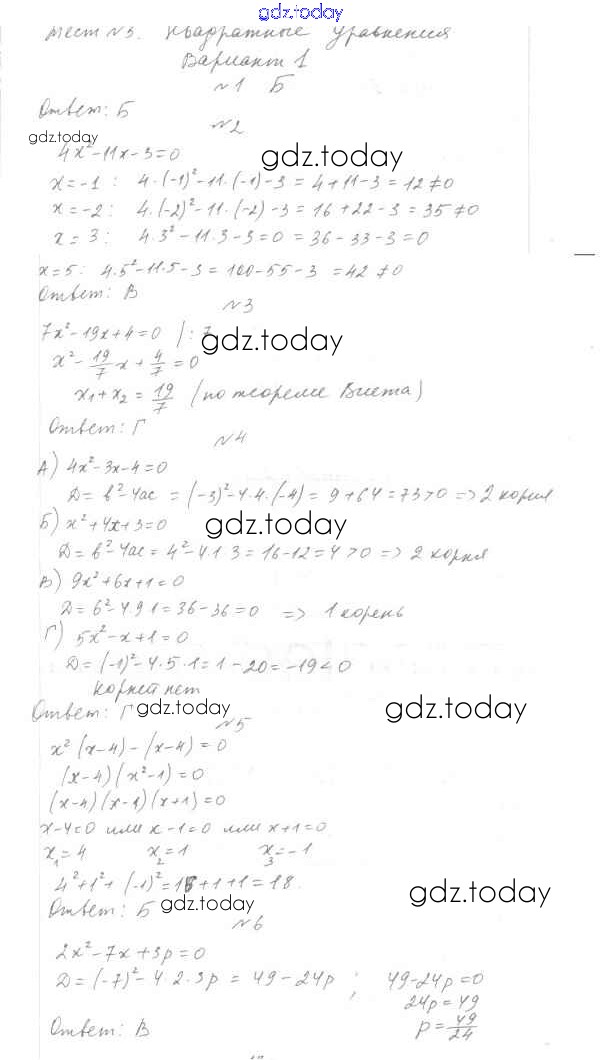 gdz.today
Тест №3. Квадратные уравнения
Вариант 1
№1 Б
Ответ: Б
gdz.today
№2
4x²-11x-3=0
gdz.today
x=-1: 4·(-1)²-11·(-1)-3=4+11-3=12≠0
x=-2: 4·(-2)²-11·(-2)-3=16+22-3=35≠0
x=3: 4·3²-11·3-3=0=36-33-3=0
x=5: 4·5²-11·5-3=100-55-3=42≠0
Ответ: В
№3
7x²-19x+4=0 |:7
gdz.today
x²-19/7x+4/7=0
x₁+x₂=19/7 (по теореме Виета)
Ответ: Г
№4
А) 4x²-3x-4=0
D=b²-4ac=(-3)²-4·4·(-4)=9+64=73>0 => 2 корня
Б) x²+4x+3=0
gdz.today
D=b²-4ac=4²-4·1·3=16-12=4>0 => 2 корня
В) 9x²+6x+1=0
D=6²-4·9·1=36-36=0 => 1 корень
Г) 5x²-x+1=0
D=(-1)²-4·5·1=1-20=-19<0
корней нет
Ответ: Г
gdz.today
gdz.today
№5
x²(x-4)-(x-4)=0
(x-4)(x²-1)=0
(x-4)(x-1)(x+1)=0
x-4=0 или x-1=0 или x+1=0
x₁=4 x₂=1 x₃=-1
4²+1²+(-1)²=16+1+1=18.
Ответ: Б
gdz.today
gdz.today
№6
2x²-7x+3p=0
D=(-7)²-4·2·3p=49-24p; 49-24p=0
24p=49
Ответ: В p=49/24